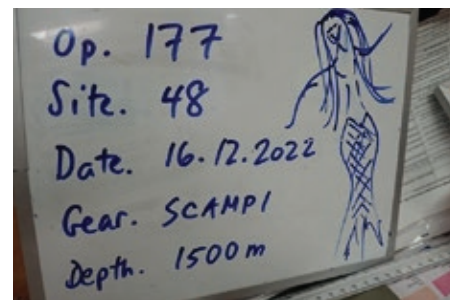 Op. 177
Site. 48
Date. 16.12.2022
Gear. SCAMPI
Depth. 1500m